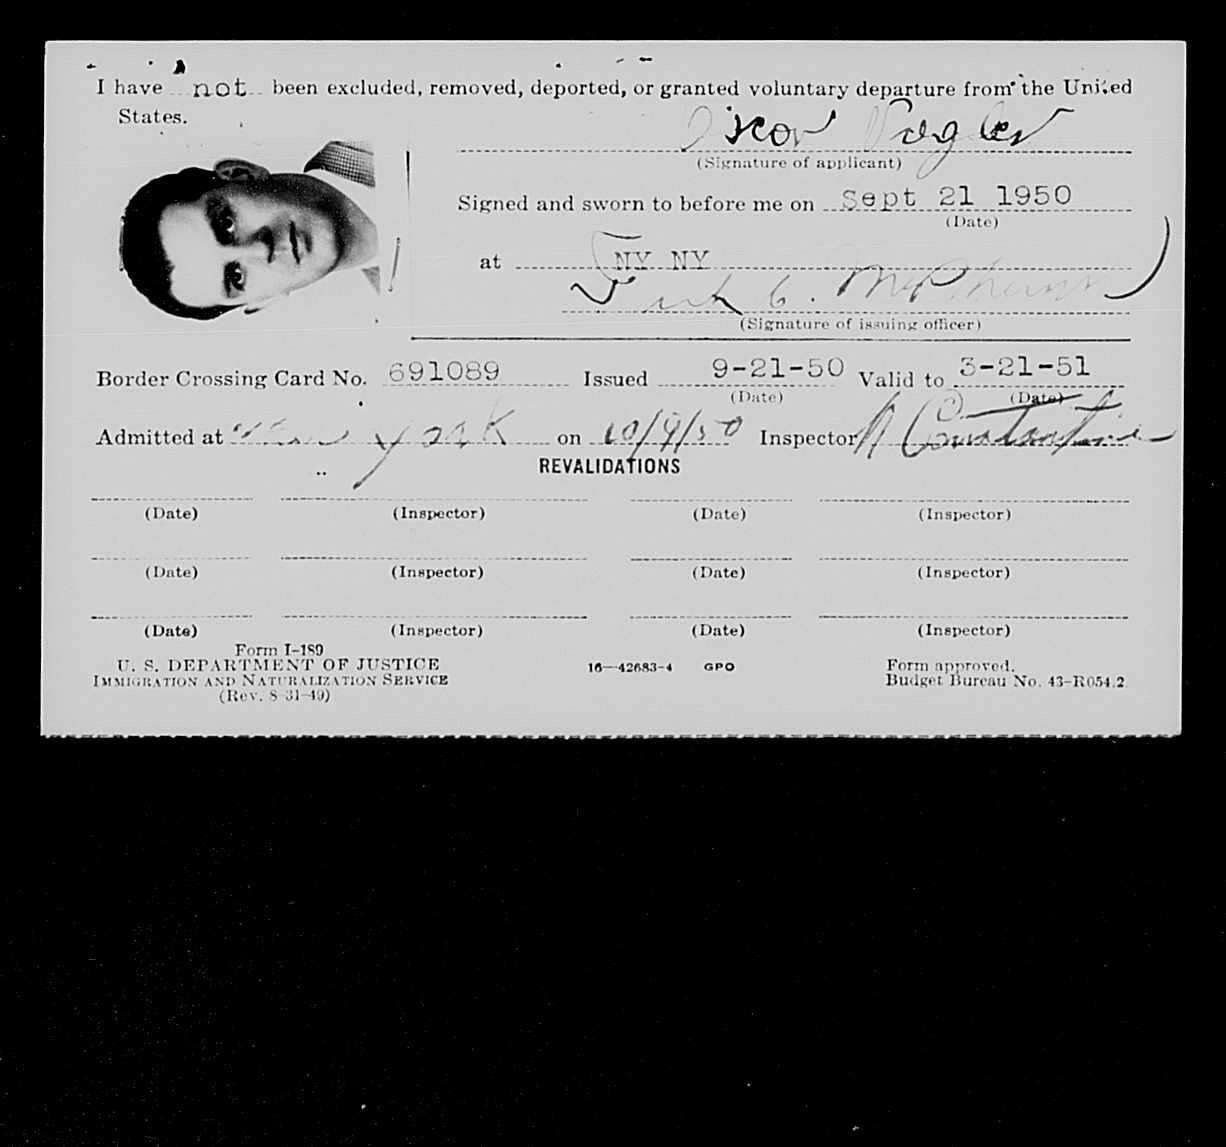 I have not been excluded, removed, deported, or granted voluntary departure from the United
States.
Oscar
(Signature of applicant)
Signed and sworn to before me on Sept 21 1950
(Date)
at NY NY
(Signature of issuing officer)
Border Crossing Card No. 691089 Issued 9-21-50 Valid to 3-21-51
(Date) (Date)
Admitted at New York on 10/9/50 Inspector N Constantine
REVALIDATIONS
(Date) (Inspector) (Date) (Inspector)
(Date) (Inspector) (Date) (Inspector)
(Date) (Inspector) (Date) (Inspector)
Form I-189
U. S. DEPARTMENT OF JUSTICE 16—42683-4 GPO Form approved.
IMMIGRATION AND NATURALIZATION SERVICE Budget Bureau No. 43-R054.2.
(Rev. 8-31-49)